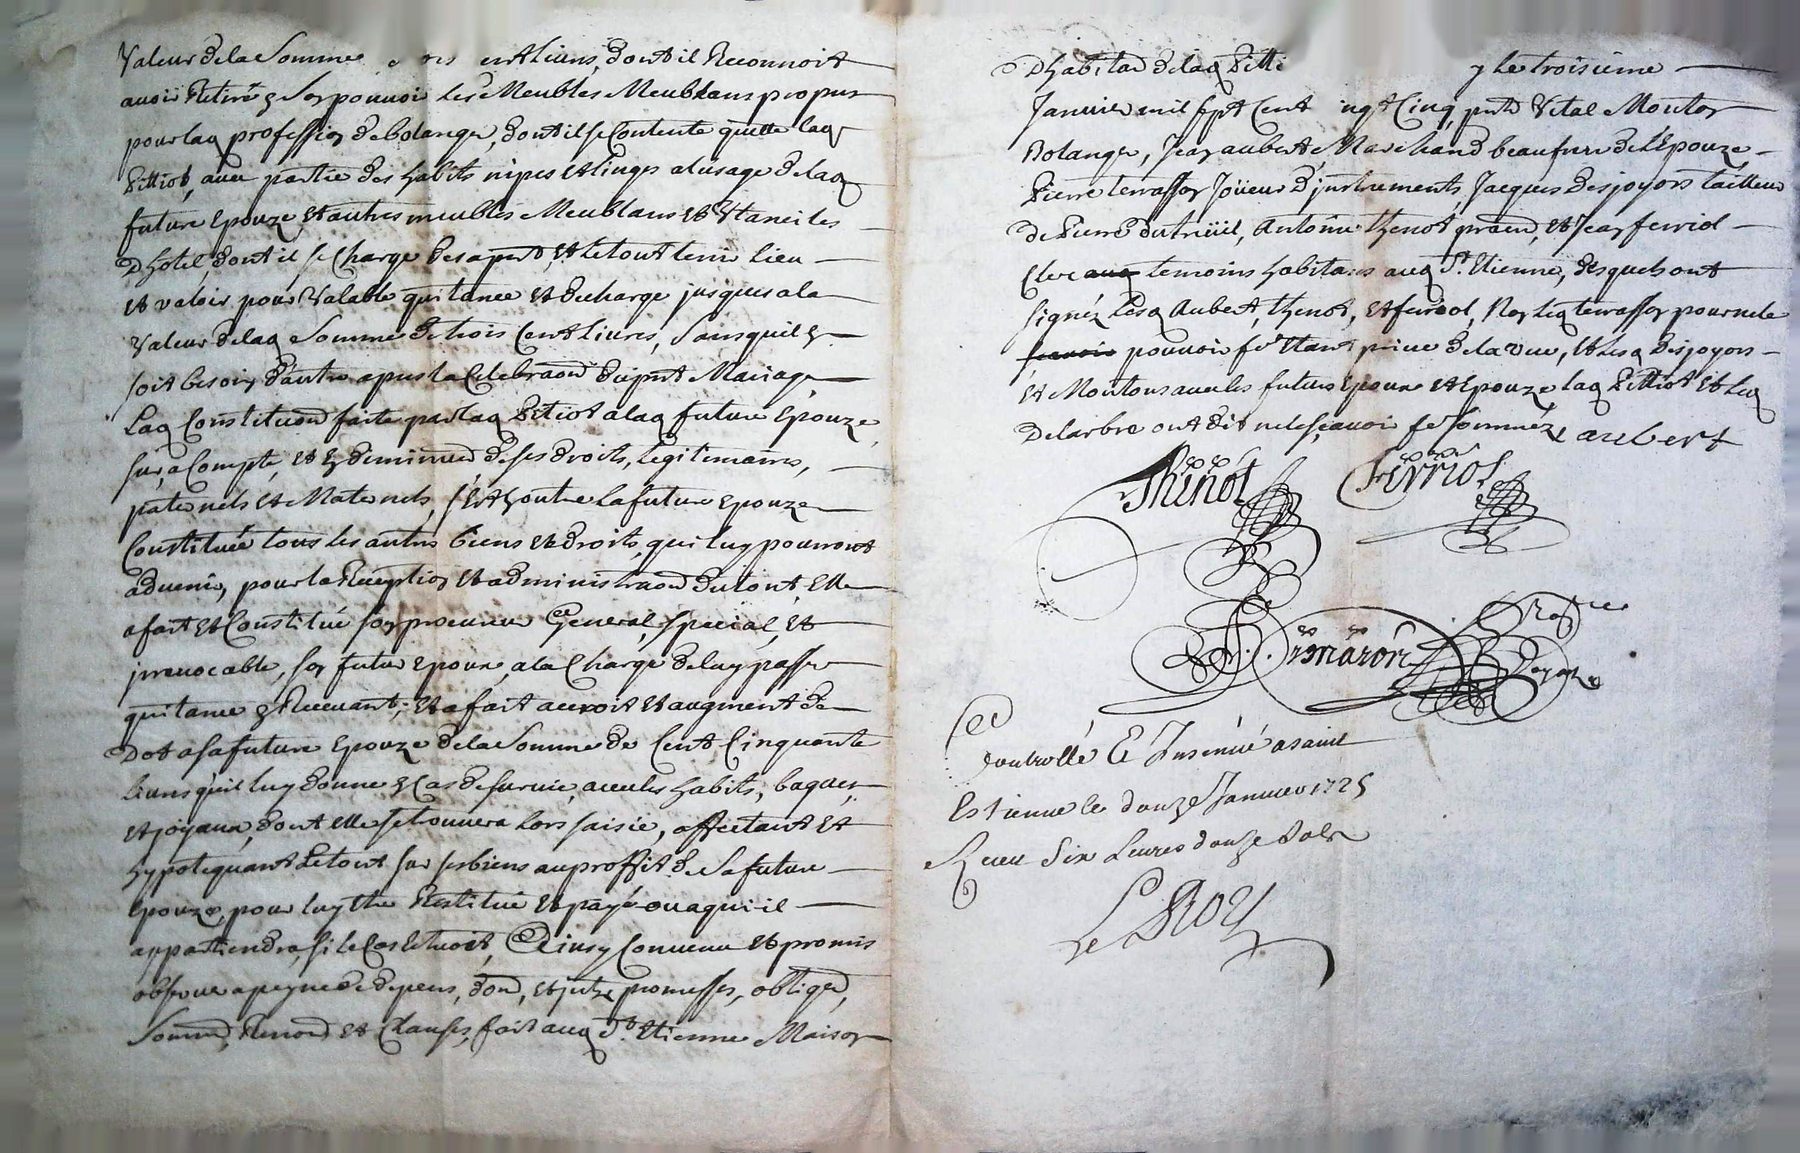 Valeur de la Somme
avoir Retiré & Son pouvoir les Meubles Meublans propres
pour laq profession de bolanger, dont il se Contente quitte laq
Pittiot, avec partie des habits nipes et linges a l'usage de laq
future Epouze, et autres meubles Meublans et Utancilles
D'hotel, dont il se Charge des apnt, et le tout tenir lieu
et valoir pour Valable quitance et decharge jusques a la
Valeur de laq Somme de trois Cent livres, Sans quil y
soit besoin d'autre apres la Celebraon du pnt Mariage
Laq Constituon faite par laq Pitiot a laq future Epouze
sur, a Compte, et & diminuon de ses droits, legitimaires,
paternels et Maternels, & outre la future Epouze
Constituée tous les autres biens et droits qui luy pourront
advenir, pour la Reception et administraon du tout, Elle
a fait et Constitué son procureur General, special, et
irrevocable, son futur epoux, a la Charge de luy passer
quitance & Recevant; et a fait accroit et augment de
Dot a sa future Epouze de la Somme de Cent Cinquante
livres qu'il luy donne & Cas de survie, avec les habits, bagues,
et joyaux, dont elle se trouvera lors saisie, affectant et
hypotequant le tout sur ses biens au proffit de sa future
Epouze, pour luy être Restitué et payé ou a qui il
appartiendra, si le Cas le avoit, Ainsy Convenu et promis
observer a peyne de depens, dom, et jntz promesses, obligon,
Soumon, Renon et Clauses, fait auq St. Etienne Maison
D'habitaon de laq Pitti y le troisieme
Janvier mil sept Cent ingt Cinq, pnts Vital Mouton
Bolanger, Jean aubert Marchand beaufrere de L'Epouze,
Pierre terrasson Joüeur d'jnstruments, Jacques desjoyors tailleur
de Pierre dutreüil, Antoine thenot praon, et Jean ferriol
Clerc auq temoins habitans auq St. Etienne, desquels ont
signéz Lesq Aubert, thenot, et feriol, Non Leq terrasson pour ne le
scavoir pouvoir fe etant privé de la vue, et Lesq Desjoyors
et Moutons avec les futurs Epoux et Epouze laq Pittiot et Leq
Delarbre ont dit ne le sçavoir fe sommés aubert
Thénot Ferriol
Controllé Et Jnsinué a saint
Estienne le douze Janvier 1725
Receu Six Livres douse Sols
Le Roy